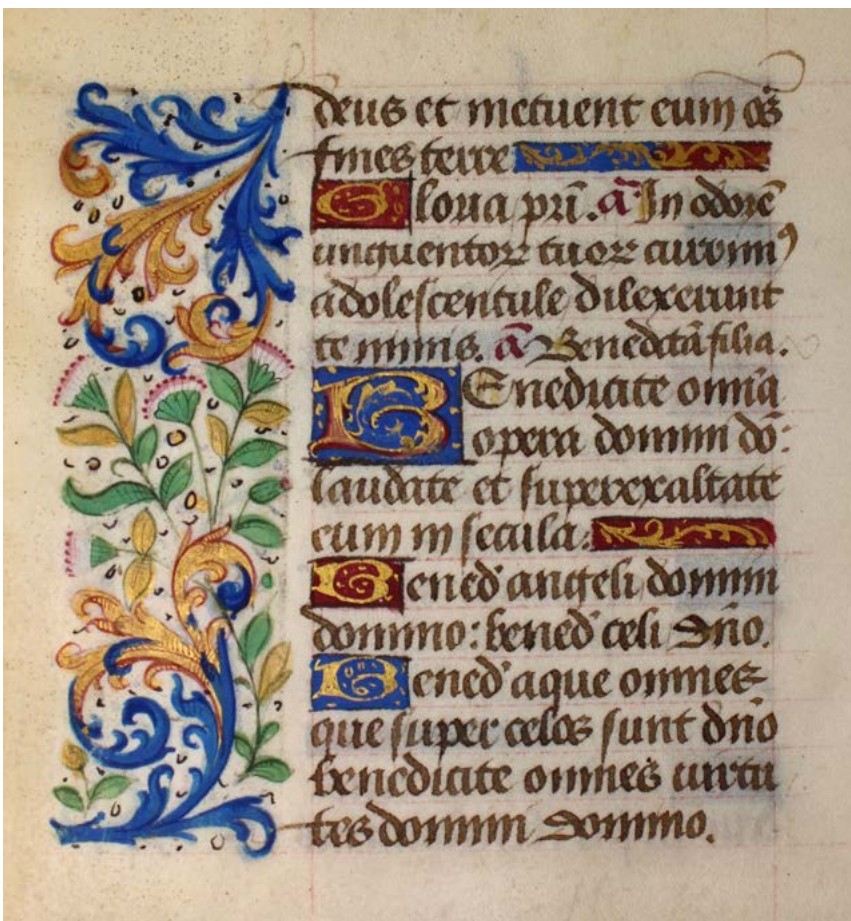 deus et metuent eum oēs
fines terre
Gloria pri. añ In odorē
unguentoꝝ tuoꝝ currimꝰ
adolescentule dilexerunt
te nimis. añ Benedictā filia.
BEnedicite omnia
opera domini dño:
laudate et superexaltate
eum in secula.
Bened' angeli domini
domino: bened' celi dño.
Bened' aque omnes
que super celos sunt dño
benedicite omnes virtu
tes domini domino.